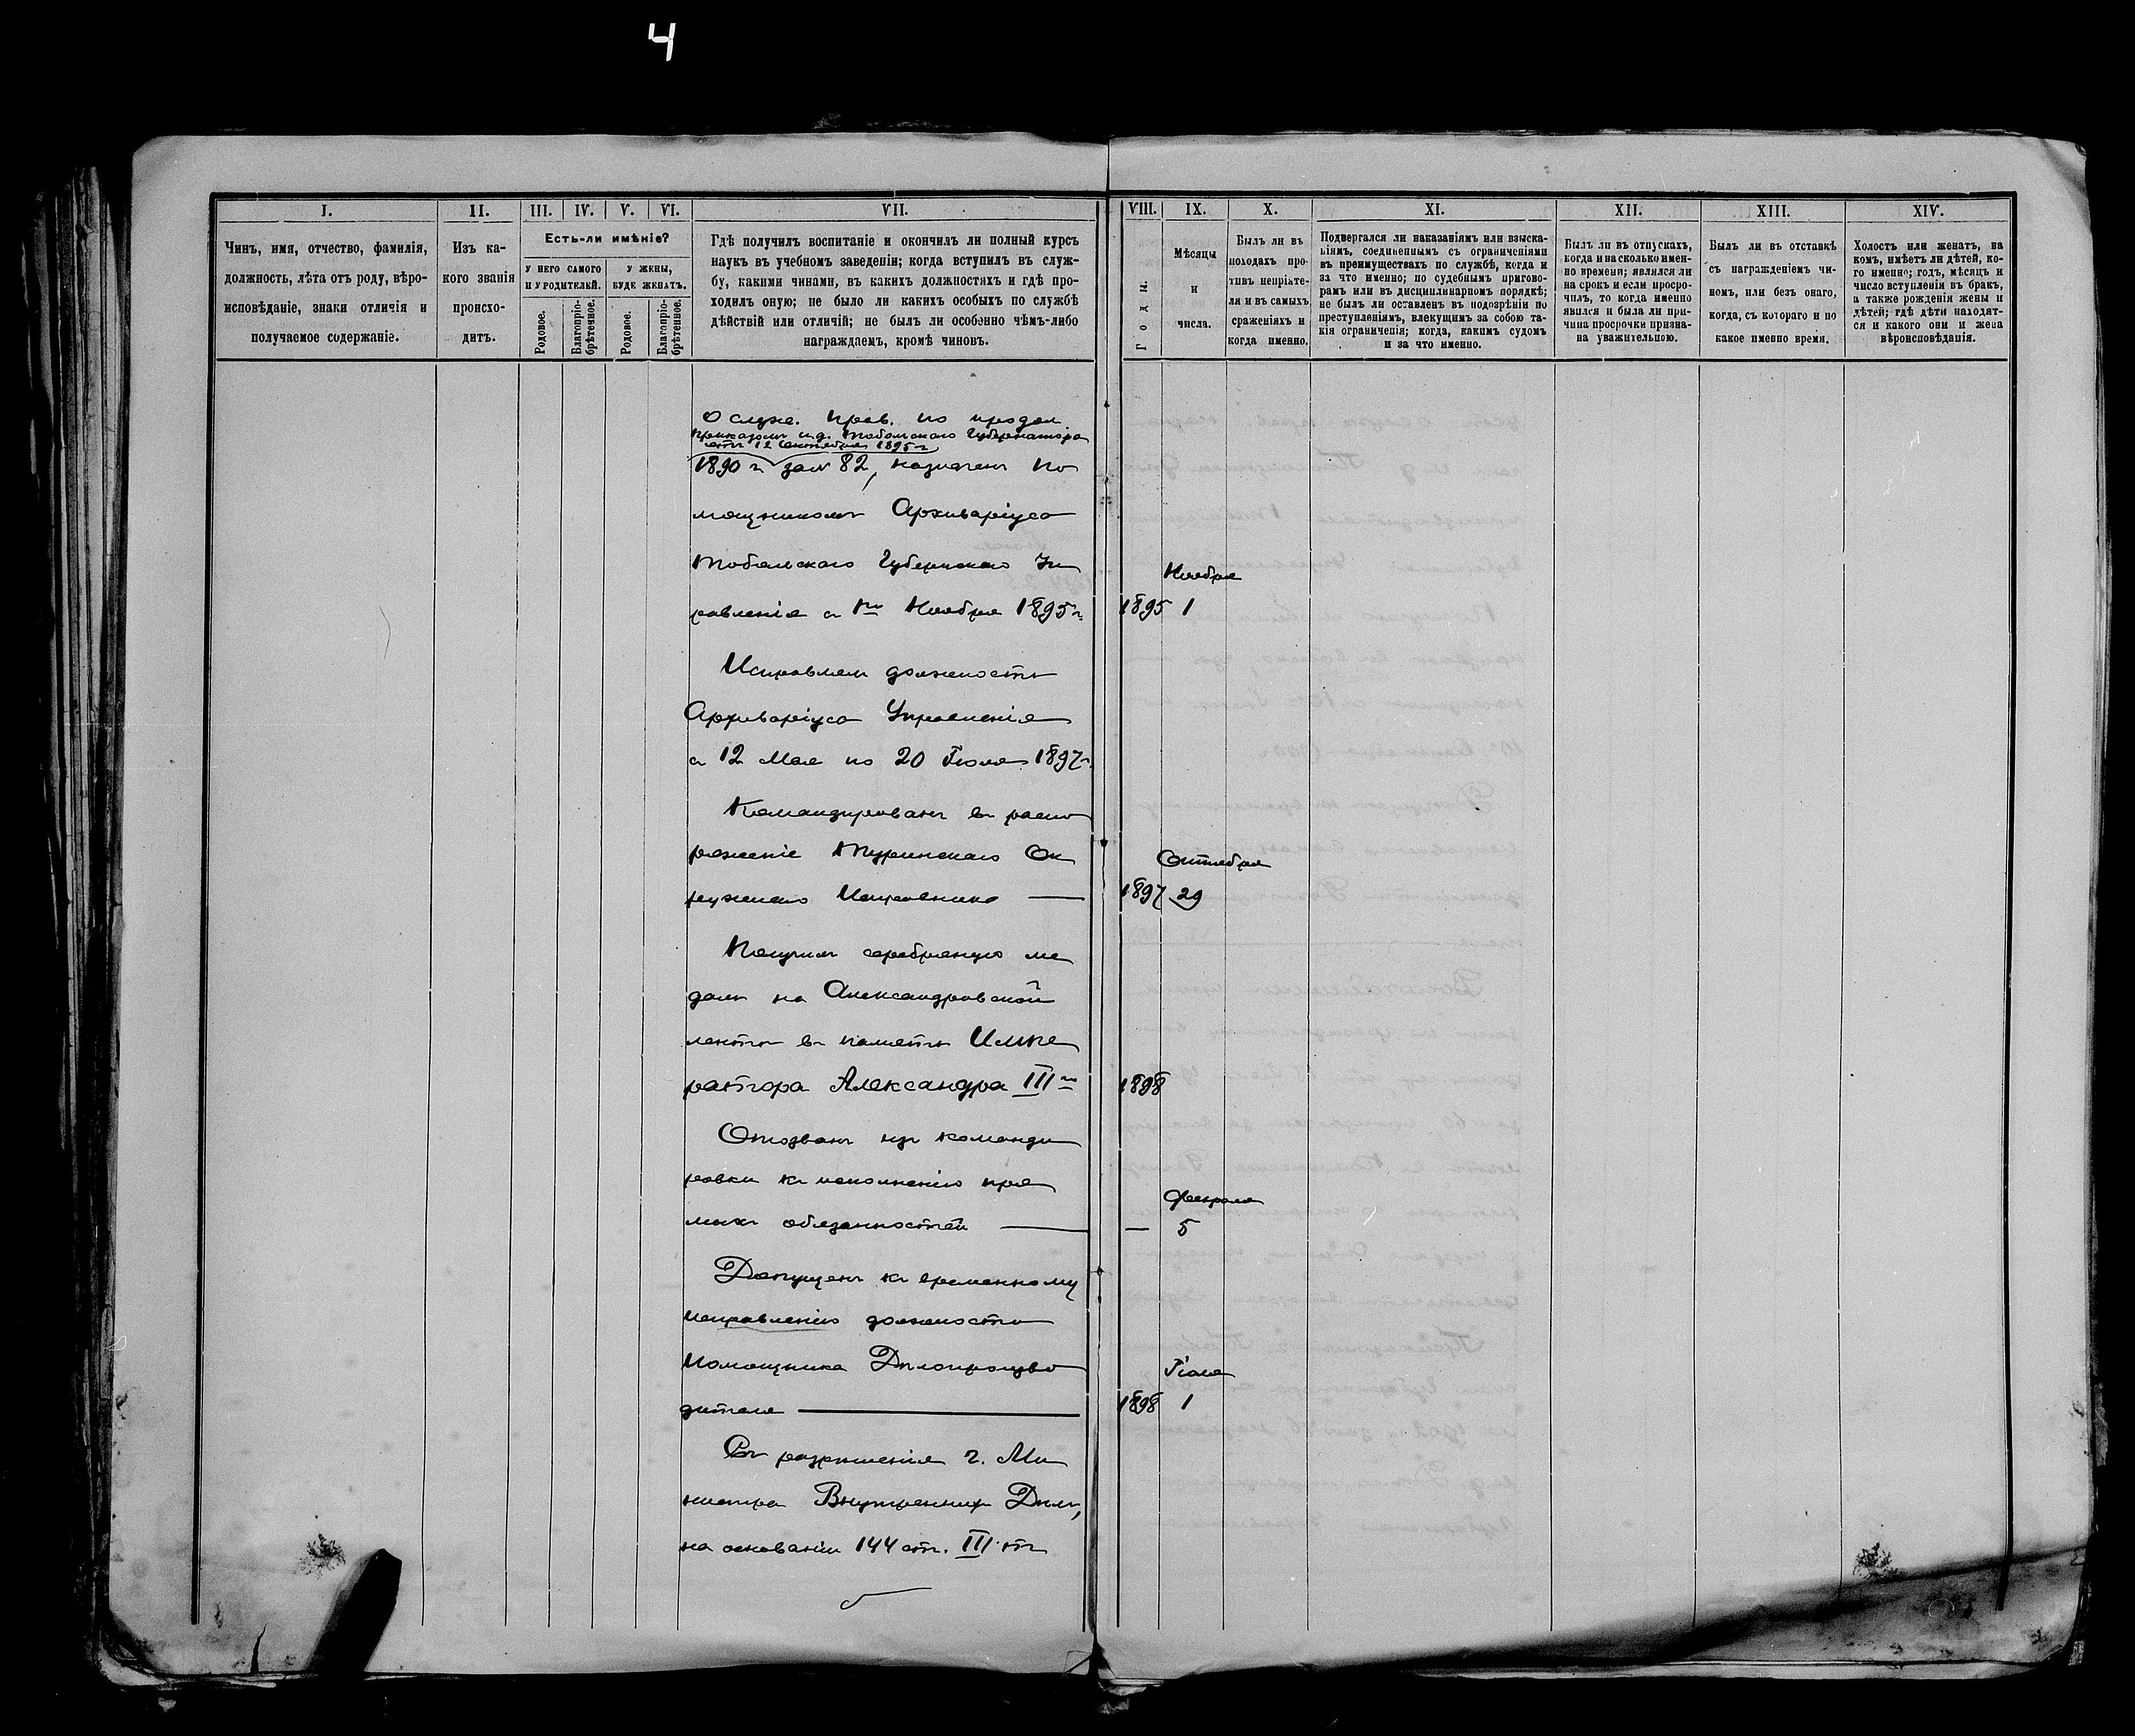 4
I.
II.
III.
IV.
V.
VI.
VII.
VIII.
IX.
X.
XI.
XII.
XIII.
XIV.
Чинъ, имя, отчество, фамилія,
должность, лѣта отъ роду, вѣро-
исповѣданіе, знаки отличія и
получаемое содержаніе.
Изъ ка-
кого званія
происхо-
дитъ.
Есть-ли имѣніе?
У НЕГО САМОГО
И У РОДИТЕЛЕЙ.
У ЖЕНЫ,
БУДЕ ЖЕНАТЪ.
Родовое.
Благопріо-
брѣтенное.
Родовое.
Благопріо-
брѣтенное.
Гдѣ получилъ воспитаніе и окончилъ ли полный курсъ
наукъ въ учебномъ заведеніи; когда вступилъ въ служ-
бу, какими чинами, въ какихъ должностяхъ и гдѣ про-
ходилъ оную; не было ли какихъ особыхъ по службѣ
дѣйствій или отличій; не былъ ли особенно чѣмъ-либо
награждаемъ, кромѣ чиновъ.
Годы.
Мѣсяцы
и
числа.
Былъ ли въ
походахъ про-
тивъ непріяте-
ля и въ самыхъ
сраженіяхъ и
когда именно.
Подвергался ли наказаніямъ или взыска-
ніямъ, соединеннымъ съ ограниченіями
въ преимуществахъ по службѣ, когда и
за что именно; по судебнымъ пригово-
рамъ или въ дисциплинарномъ порядкѣ;
не былъ ли оставленъ въ подозрѣніи по
преступленіямъ, влекущимъ за собою та-
кія ограниченія; когда, какимъ судомъ
и за что именно.
Былъ ли въ отпускахъ,
когда и на сколько имен-
но времени; являлся ли
на срокъ и если просро-
чилъ, то когда именно
явился и была ли при-
чина просрочки призна-
на уважительною.
Былъ ли въ отставкѣ
съ награжденіемъ чи-
номъ, или безъ онаго,
когда, съ котораго и по
какое именно время.
Холостъ или женатъ, на
комъ, имѣетъ ли дѣтей, ко-
го именно; годъ, мѣсяцъ и
число вступленія въ бракъ,
а также рожденія жены и
дѣтей; гдѣ дѣти находят-
ся и какого они и жена
вѣроисповѣданія.
О служ. прав. по
приказомъ и.д. Тобольскаго Губернатора
отъ 1895 г.
1890 г. за № 82, назначенъ по
мощникомъ Архиваріуса
Тобольскаго Губернскаго Уп
равленія съ 1го Ноября 1895 г.
Ноября
1895 1
Исправлялъ должность
Архиваріуса Управленія
съ 12 Мая по 20 Іюля 1897 г.
Командированъ въ распо
ряженіе Туринскаго Ок
ружнаго Исправника
1897 29
Получилъ серебряную ме
даль на Александровской
лентѣ въ память Импе
ратора Александра III го
1898
Отозванъ изъ команди
ровки къ исполненію пря
мыхъ обязанностей
Февраля
— 5
Допущенъ къ временному
исправленію должности
Помощника Дѣлопроизво
дителя
Іюля
1898 1
Съ разрѣшенія г. Ми
нистра Внутреннихъ Дѣлъ,
на основаніи 144 ст. III т.